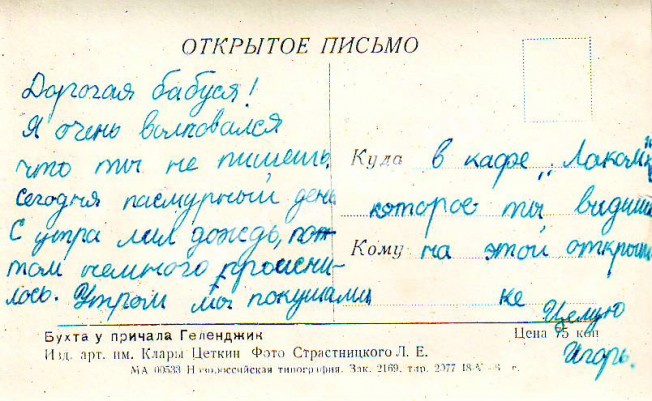 ОТКРЫТОЕ ПИСЬМО
Дорогая бабуся!
Я очень волновался
что ты не пишешь.
Сегодня пасмурный день
С утра лил дождь, пот
том немного проясни-
лось. Утром мы покушали
Куда в кафе „Лаком
которое ты видишь
Кому на этой открыт
ке
Целую
Игорь.
Бухта у причала Геленджик
Цена 75 коп
Изд. арт. им. Клары Цеткин Фото Страстницкого Л. Е.
МА 00533 Новороссийская типография. Зак. 2169, тир. 2077